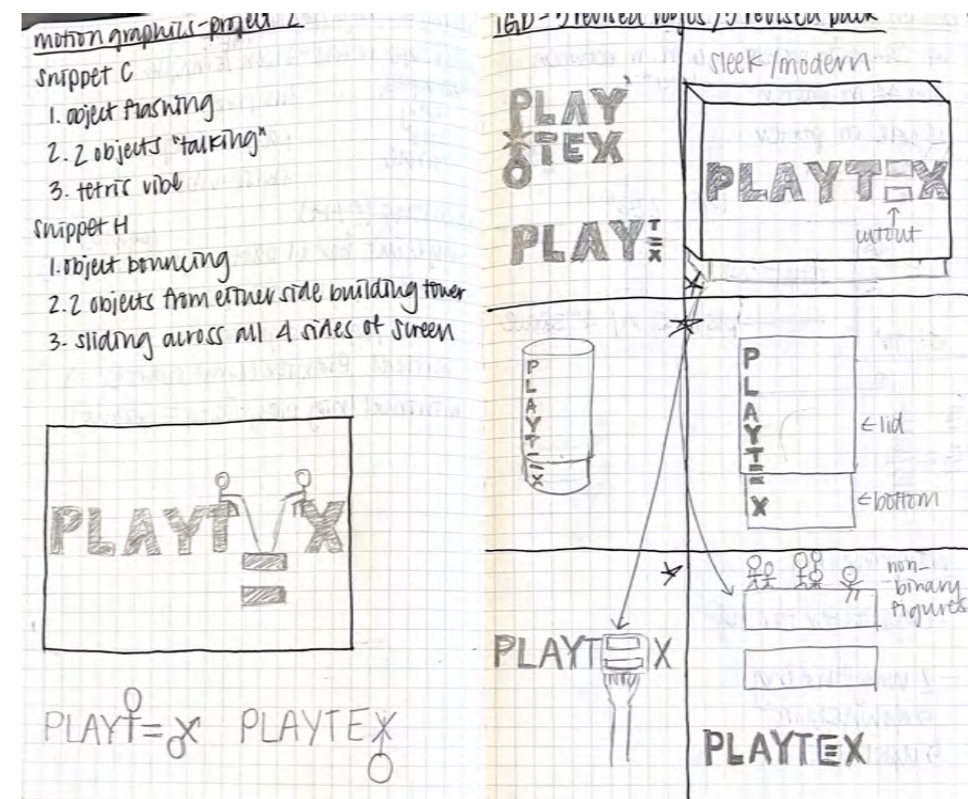 motion graphics - project 2
snippet C
1. object flashing
2. 2 objects "talking"
3. tetric vibe
snippet H
1. object bouncing
2. 2 objects from either side building tower
3. sliding across all 4 sides of screen
PLAYT X
PLAYT=X
PLAYTEX
IGD - 3 revised logos / 3 revised pack
PLAY
TEX
PLAYTEX
sleek/modern
PLAYTEX
cutout
PLAYTEX
PLAYTEX
←lid
←bottom
PLAYTEX
non-
binary
figures
PLAYTEX